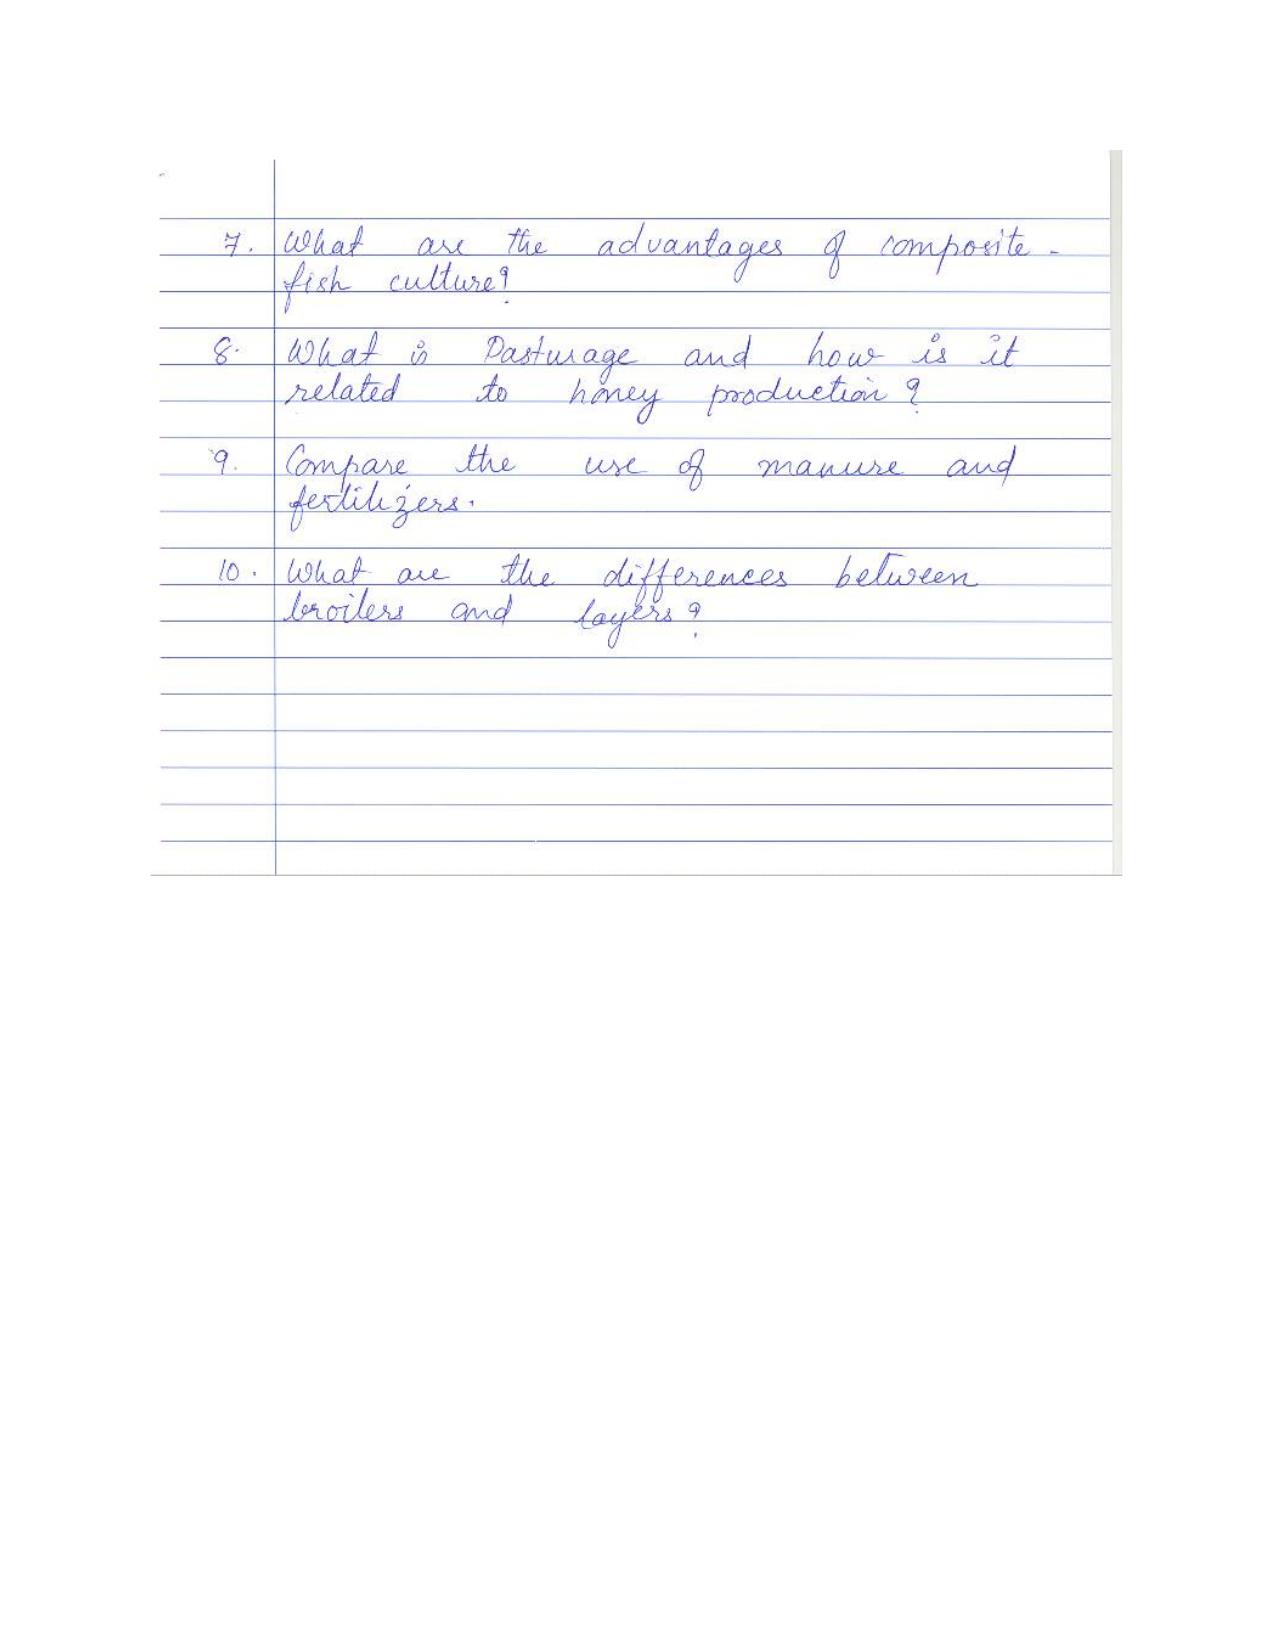 7. What are the advantages of composite -
fish culture?
8. What is Pasturage and how is it
related to honey production ?
9. Compare the use of manure and
fertilizers.
10. What are the differences between
broilers and layers?